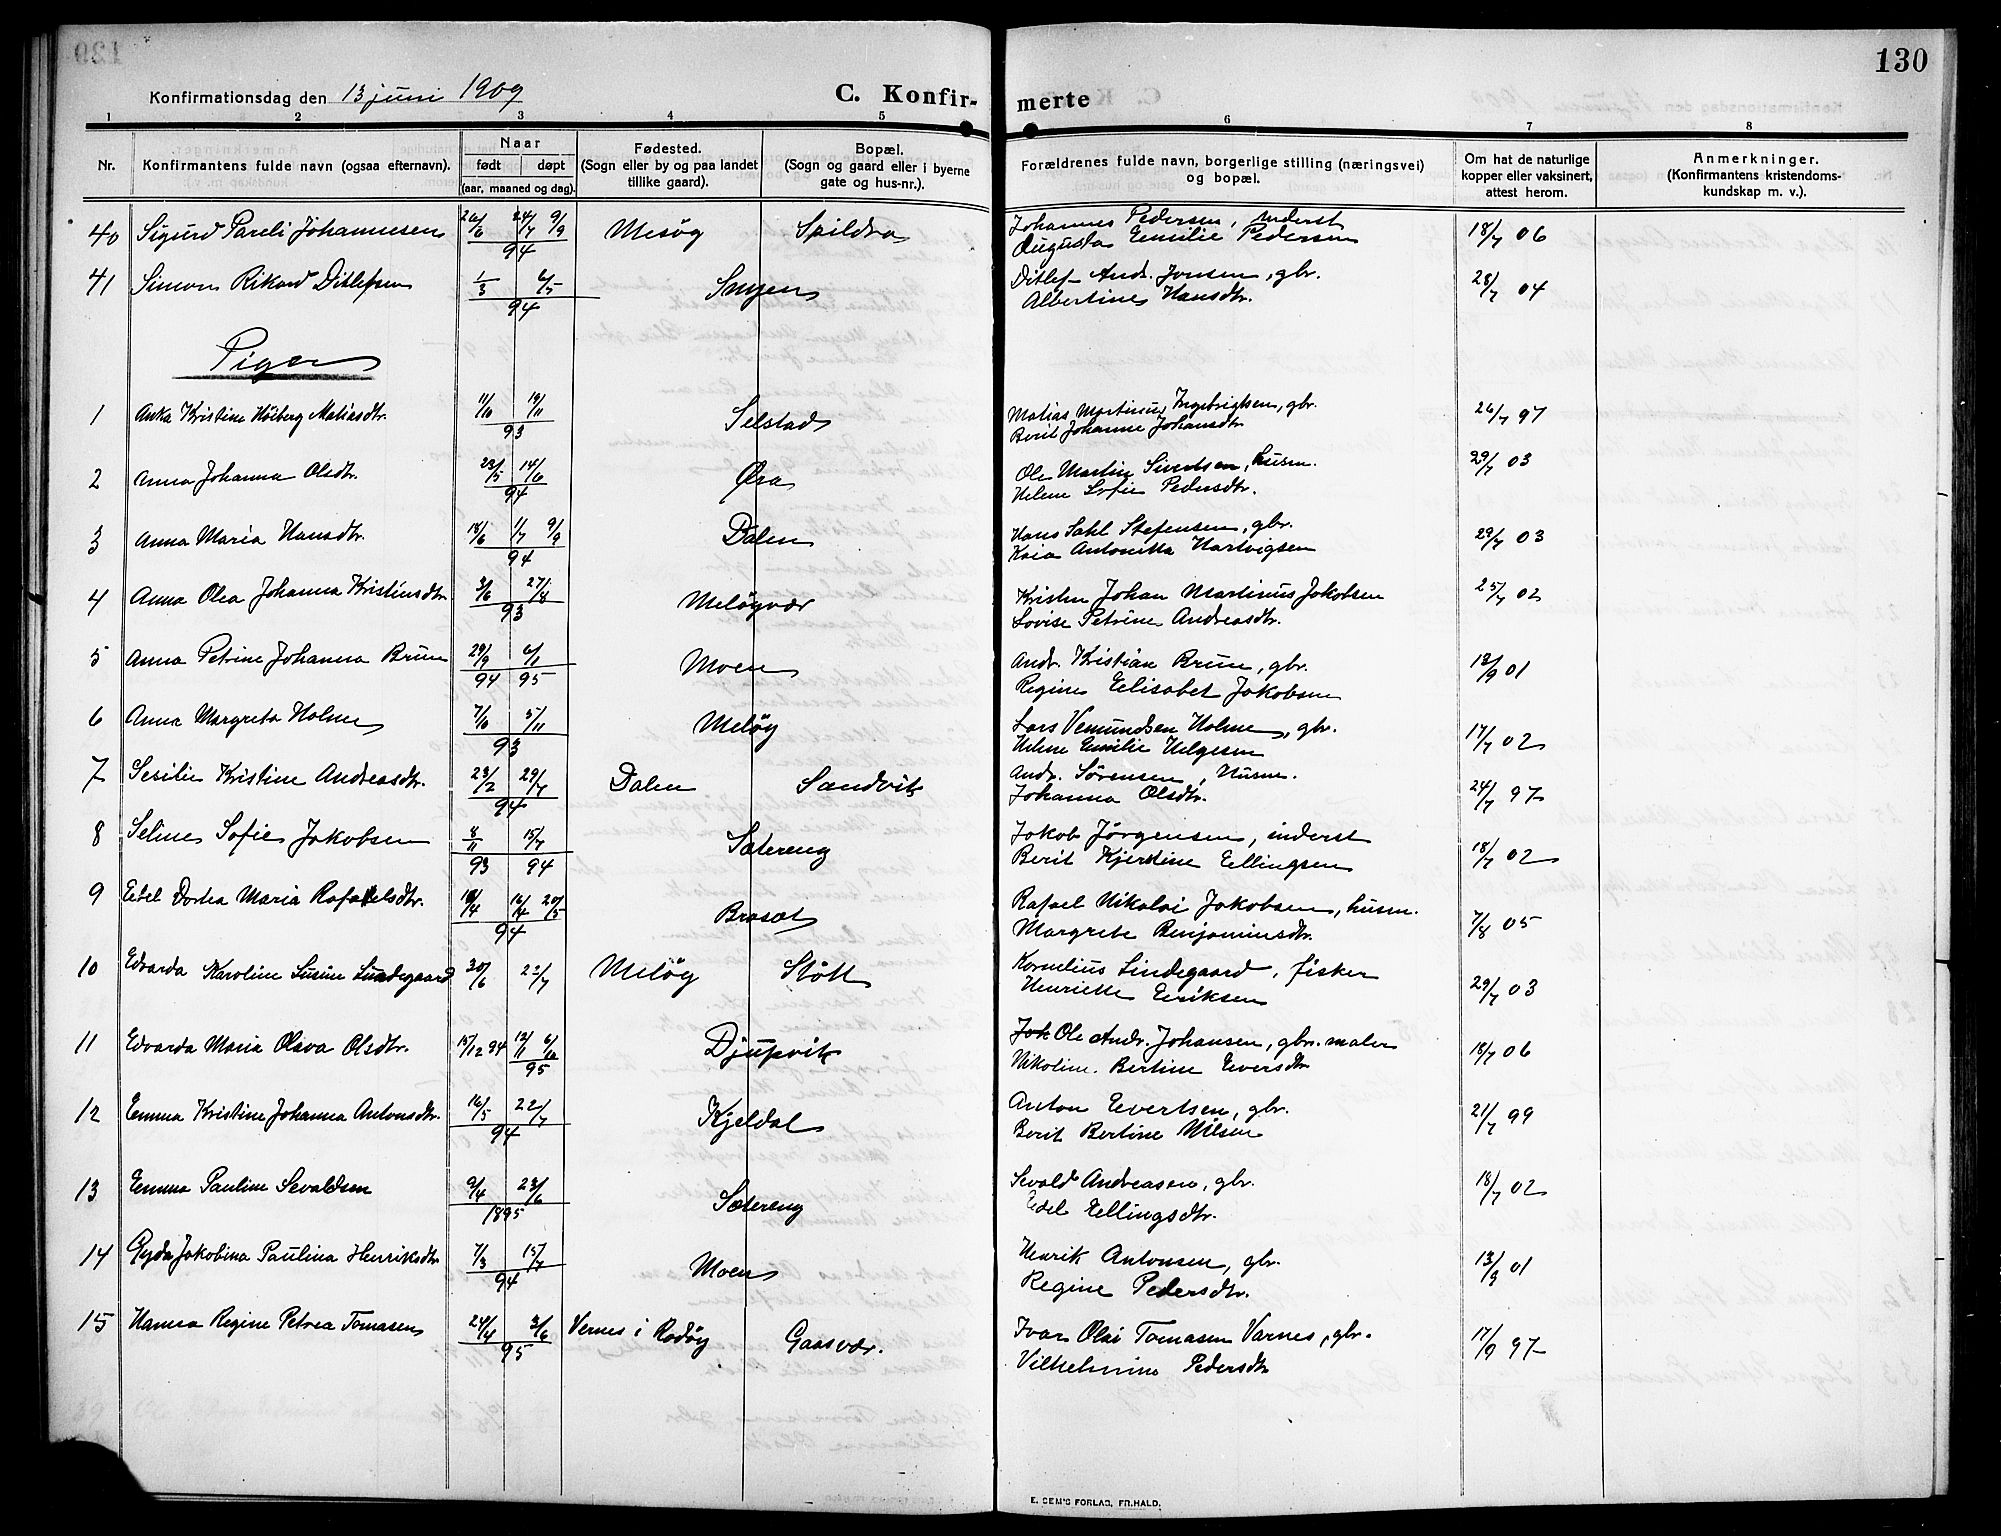 130
Konfirmationsdag den 13 juni 1909 C. Konfir- merte
1 2 3 4 5 6 7 8
Nr. Konfirmantens fulde navn (ogsaa efternavn). Naar født døpt (aar, maaned og dag). Fødested. (Sogn eller by og paa landet tillike gaard). Bopæl. (Sogn og gaard eller i byerne gate og hus-nr.). Forældrenes fulde navn, borgerlige stilling (næringsvei) og bopæl. Om hat de naturlige kopper eller vaksinert, attest herom. Anmerkninger. (Konfirmantens kristendoms- kundskap m. v.).
40 Sigurd Pareli Johannesen 20/6 24/7 9/9 94 Mesøy Spildra Johannes Pedersen, inderst 18/7 06
Augusta Emilie Pedersen
41 Simon Rikard Ditlefsen 1/3 6/5 94 Ditlef Andr. Jensen, gbr. 28/7 04
Albertine Hansdtr.
Piger
1 Anka Kristine Høiberg Matiasdtr. 11/10 19/11 93 Selstad Matias Martinus Ingebrigtsen, gbr. 26/7 97
Berit Johanne Johansdtr
2 Anna Johanna Olsdtr. 23/5 14/6 94 Øra Ole Martin Sivertsen, husm. 29/7 03
Helene Sofie Pedersdtr.
3 Anna Maria Hansdtr. 18/6 1/7 9/9 94 Dalen Hans Dahl Stefensen, gbr. 29/7 03
Kaia Antonitta Hartvigsen
4 Anna Olea Johanna Kristinsdtr 3/6 27/8 93 Meløyvær Kristen Johan Martinus Jakobsen 25/7 02
Lovise Petrine Andreasdtr.
5 Anna Petrine Johanna Brun 29/9 94 6/1 95 Moen Andr. Kristian Brun, gbr. 12/9 01
Regine Elisabet Jakobsen
6 Anna Margreta Holm 7/10 5/11 93 Meløy Lars Vemundsen Holme, gbr. 17/7 02
Helene Emilie Helgesen
7 Sesilie Kristine Andreasdtr. 23/2 29/7 94 Dalen Sandvik Andr. Sørensen, Husm. 24/7 97
Johanna Olsdtr.
8 Seline Sofie Jakobsen 8/11 93 15/7 94 Sætereng Jakob Jørgensen, inderst 18/7 02
Berit Kjerstine Ellingsen
9 Edel Dortea Maria Rafaelsdtr. 18/4 16/4 20/5 94 Brasæt Rafael Nikolai Jakobsen, husm. 7/8 05
Margrete Benjaminsdtr.
10 Edvarda Karoline Susine Lindegaard 30/6 22/7 Meløy Støtt Kornelius Lindegaard, fisker 29/7 03
Henriette Eriksen
11 Edvarda Maria Olava Olsdtr. 15/12 94 12/1 6/10 95 Djupvik Joh Ole Andr. Johansen, gbr. maler 18/7 06
Nikoline Bertine Eversdtr
12 Emma Kristine Johanna Antonsdtr. 16/5 22/7 94 Kjeldal Anton Evertsen, gbr. 21/7 99
Berit Bertine Nilsen
13 Emma Pauline Sevaldsen 9/4 23/6 1895 Sætereng Sevald Andreasen, gbr. 18/7 02
Edel Ellingsdtr.
14 Gyda Jakobina Paulina Henriksdtr 7/3 15/7 94 Moen Henrik Antonsen, gbr. 13/9 01
Regine Pedersdtr.
15 Hanna Regine Petrea Tomasen 24/4 3/6 95 Vernes i Rødøy Gaasvær. Ivar Olai Tomasen Varnes, gbr. 17/9 97
Vilhelmine Pedersdtr
E. SEM'S FORLAG, FR.HALD.